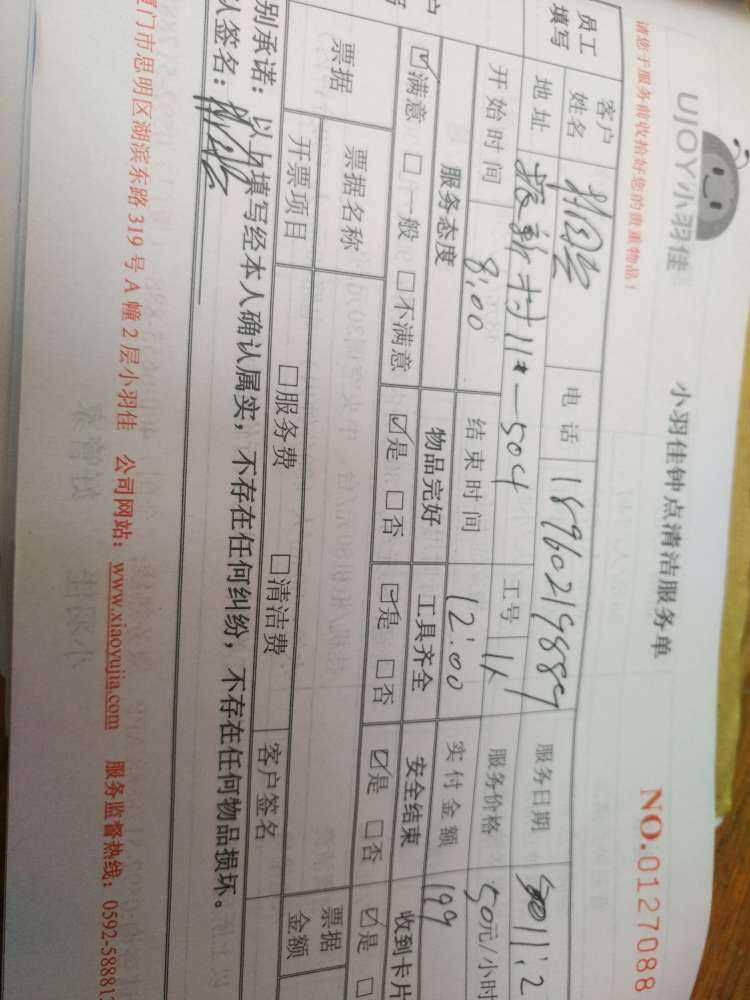 UJOY小羽佳
小羽佳钟点清洁服务单
NO.0127088
请您于服务前收拾好您的贵重物品!
员工填写 客户姓名 电话 18960219889 服务日期
地址 新村11#-504 工号 服务价格 50元/小时
开始时间 8:00 结束时间 12:00 实付金额 199
服务态度 物品完好 工具齐全 安全结束 收到卡片
☑满意 □一般 □不满意 ☑是 □否 ☑是 □否 ☑是 □否 ☑是 □
票据 票据名称 票据金额
开票项目 □服务费 □清洁费 客户签名
别承诺:以上填写经本人确认属实,不存在任何纠纷,不存在任何物品损坏。
认签名:
厦门市思明区湖滨东路319号A幢2层小羽佳 公司网站:www.xiaoyujia.com 服务监督热线:0592-58881